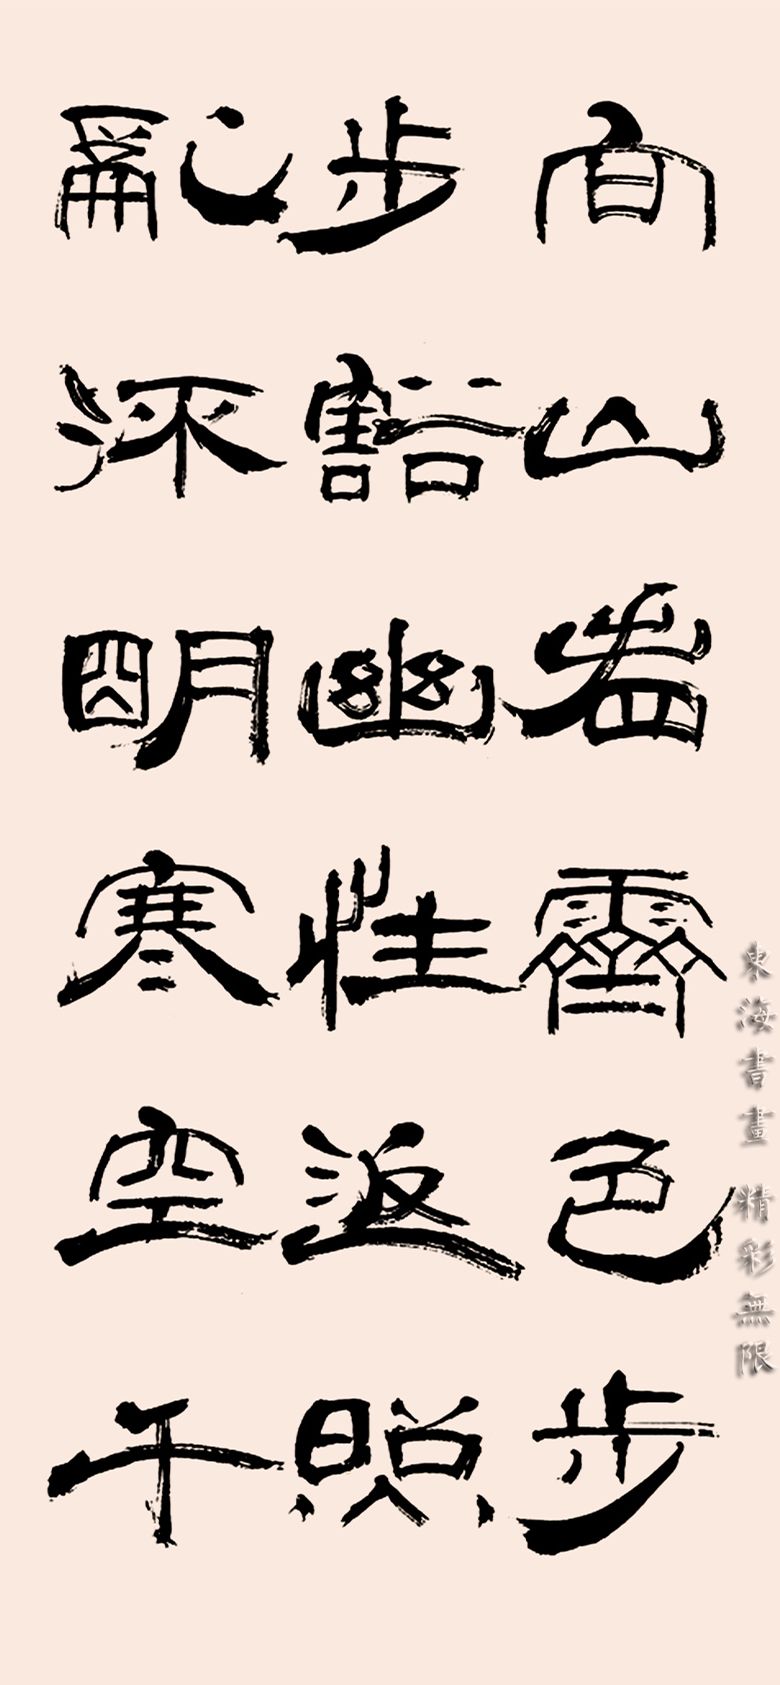 向山看霽色步
步豁幽性返照
亂流明寒空千
東海書畫 精彩無限